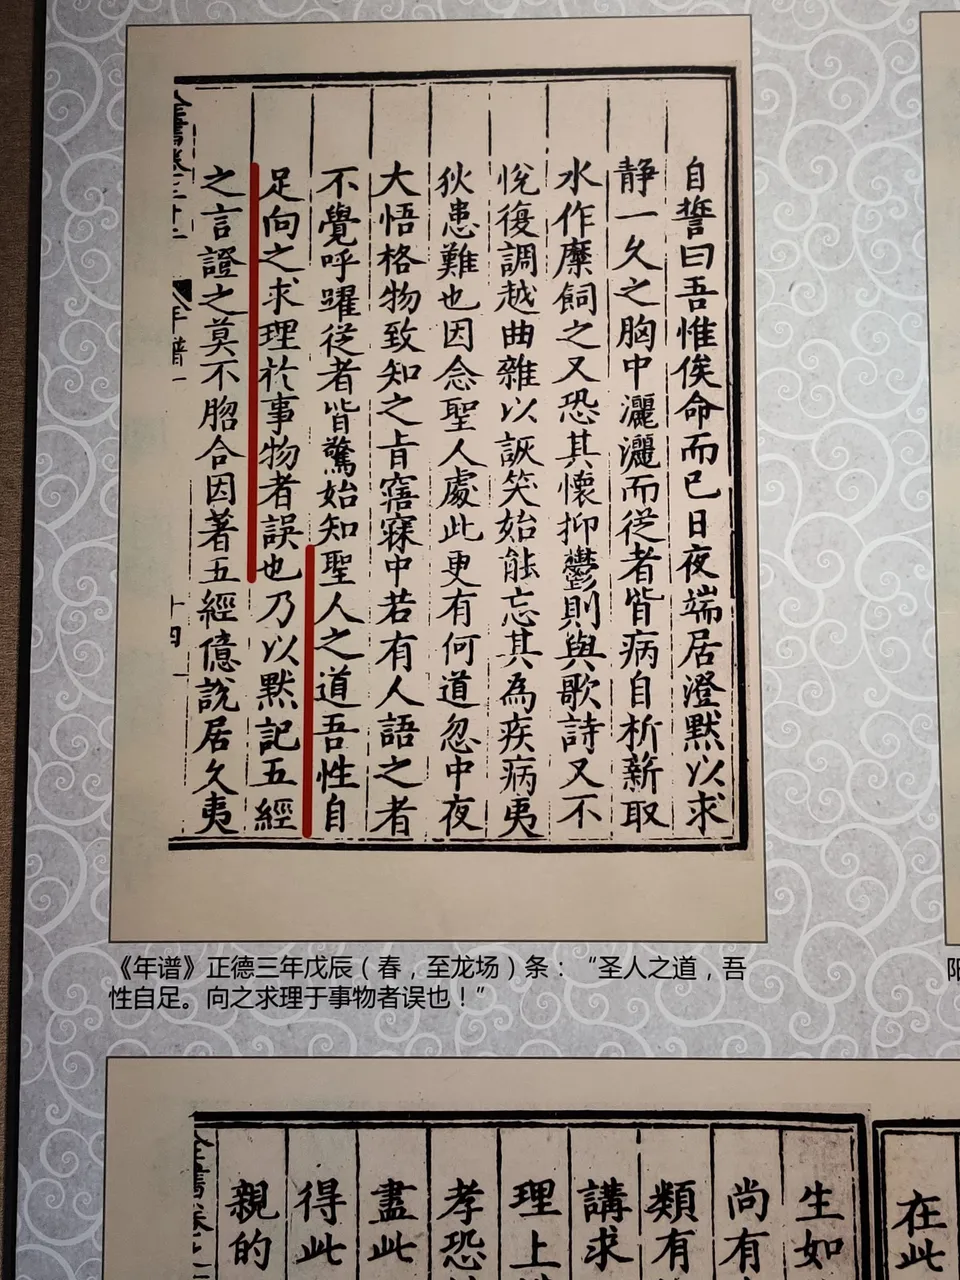 自誓曰吾惟俟命而已日夜端居澄默以求
静一久之胸中灑灑而從者皆病自析新取
水作糜飼之又恐其懷抑鬱則與歌詩又不
悅復調越曲雜以詼笑始能忘其為疾病夷
狄患難也因念聖人處此更有何道忽中夜
大悟格物致知之旨寤寐中若有人語之者
不覺呼躍從者皆驚始知聖人之道吾性自
足向之求理於事物者誤也乃以默記五經
之言證之莫不脗合因著五經億說居久夷
全書卷三十二
年譜一
十四
《年谱》正德三年戊辰（春，至龙场）条：“圣人之道，吾
性自足。向之求理于事物者误也！”
在此
生如
尚有
類有
講求
理上
孝恐
盡此
得此
親的